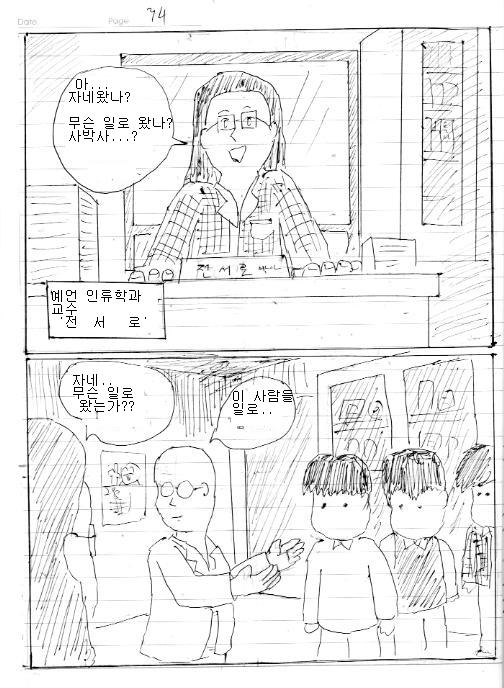 Date
Page
74
아...
자네왔나?
무슨 일로 왔나?
사박사...?
전서로
예언 인류학과
교수
전 서 로
자네..
무슨 일로
왔는가??
이 사람들
일로..